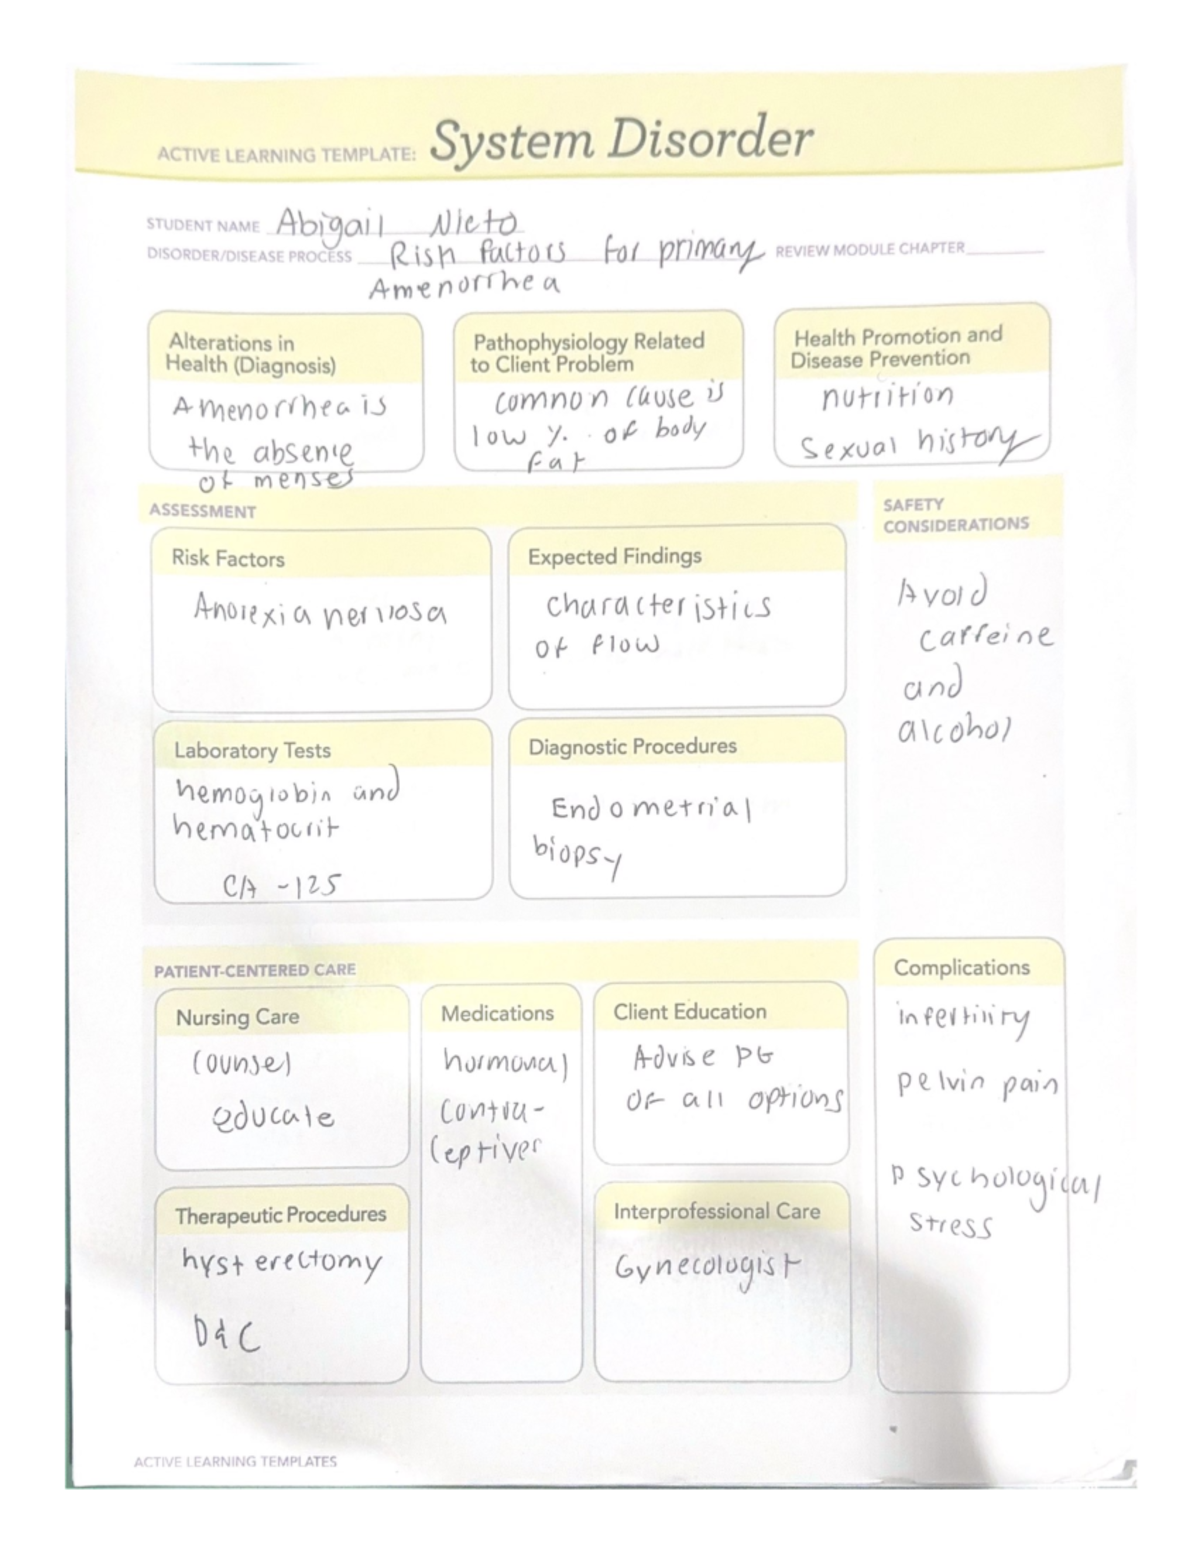 ACTIVE LEARNING TEMPLATE: System Disorder
STUDENT NAME Abigail Nieto
DISORDER/DISEASE PROCESS Risk factors for primary REVIEW MODULE CHAPTER
Amenorrhea
Alterations in
Health (Diagnosis)
Amenorrhea is
the absence
of menses
Pathophysiology Related
to Client Problem
common cause is
low % of body
fat
Health Promotion and
Disease Prevention
nutrition
Sexual history
ASSESSMENT
Risk Factors
Anorexia nervosa
Expected Findings
characteristics
of flow
Laboratory Tests
hemoglobin and
hematocrit
CA -125
Diagnostic Procedures
Endometrial
biopsy
SAFETY
CONSIDERATIONS
Avoid
caffeine
and
alcohol
PATIENT-CENTERED CARE
Nursing Care
Counsel
educate
Medications
hormonal
Contra-
ceptives
Client Education
Advise pt
of all options
Therapeutic Procedures
hysterectomy
D&C
Interprofessional Care
Gynecologist
Complications
infertility
pelvin pain
psychological
stress
ACTIVE LEARNING TEMPLATES